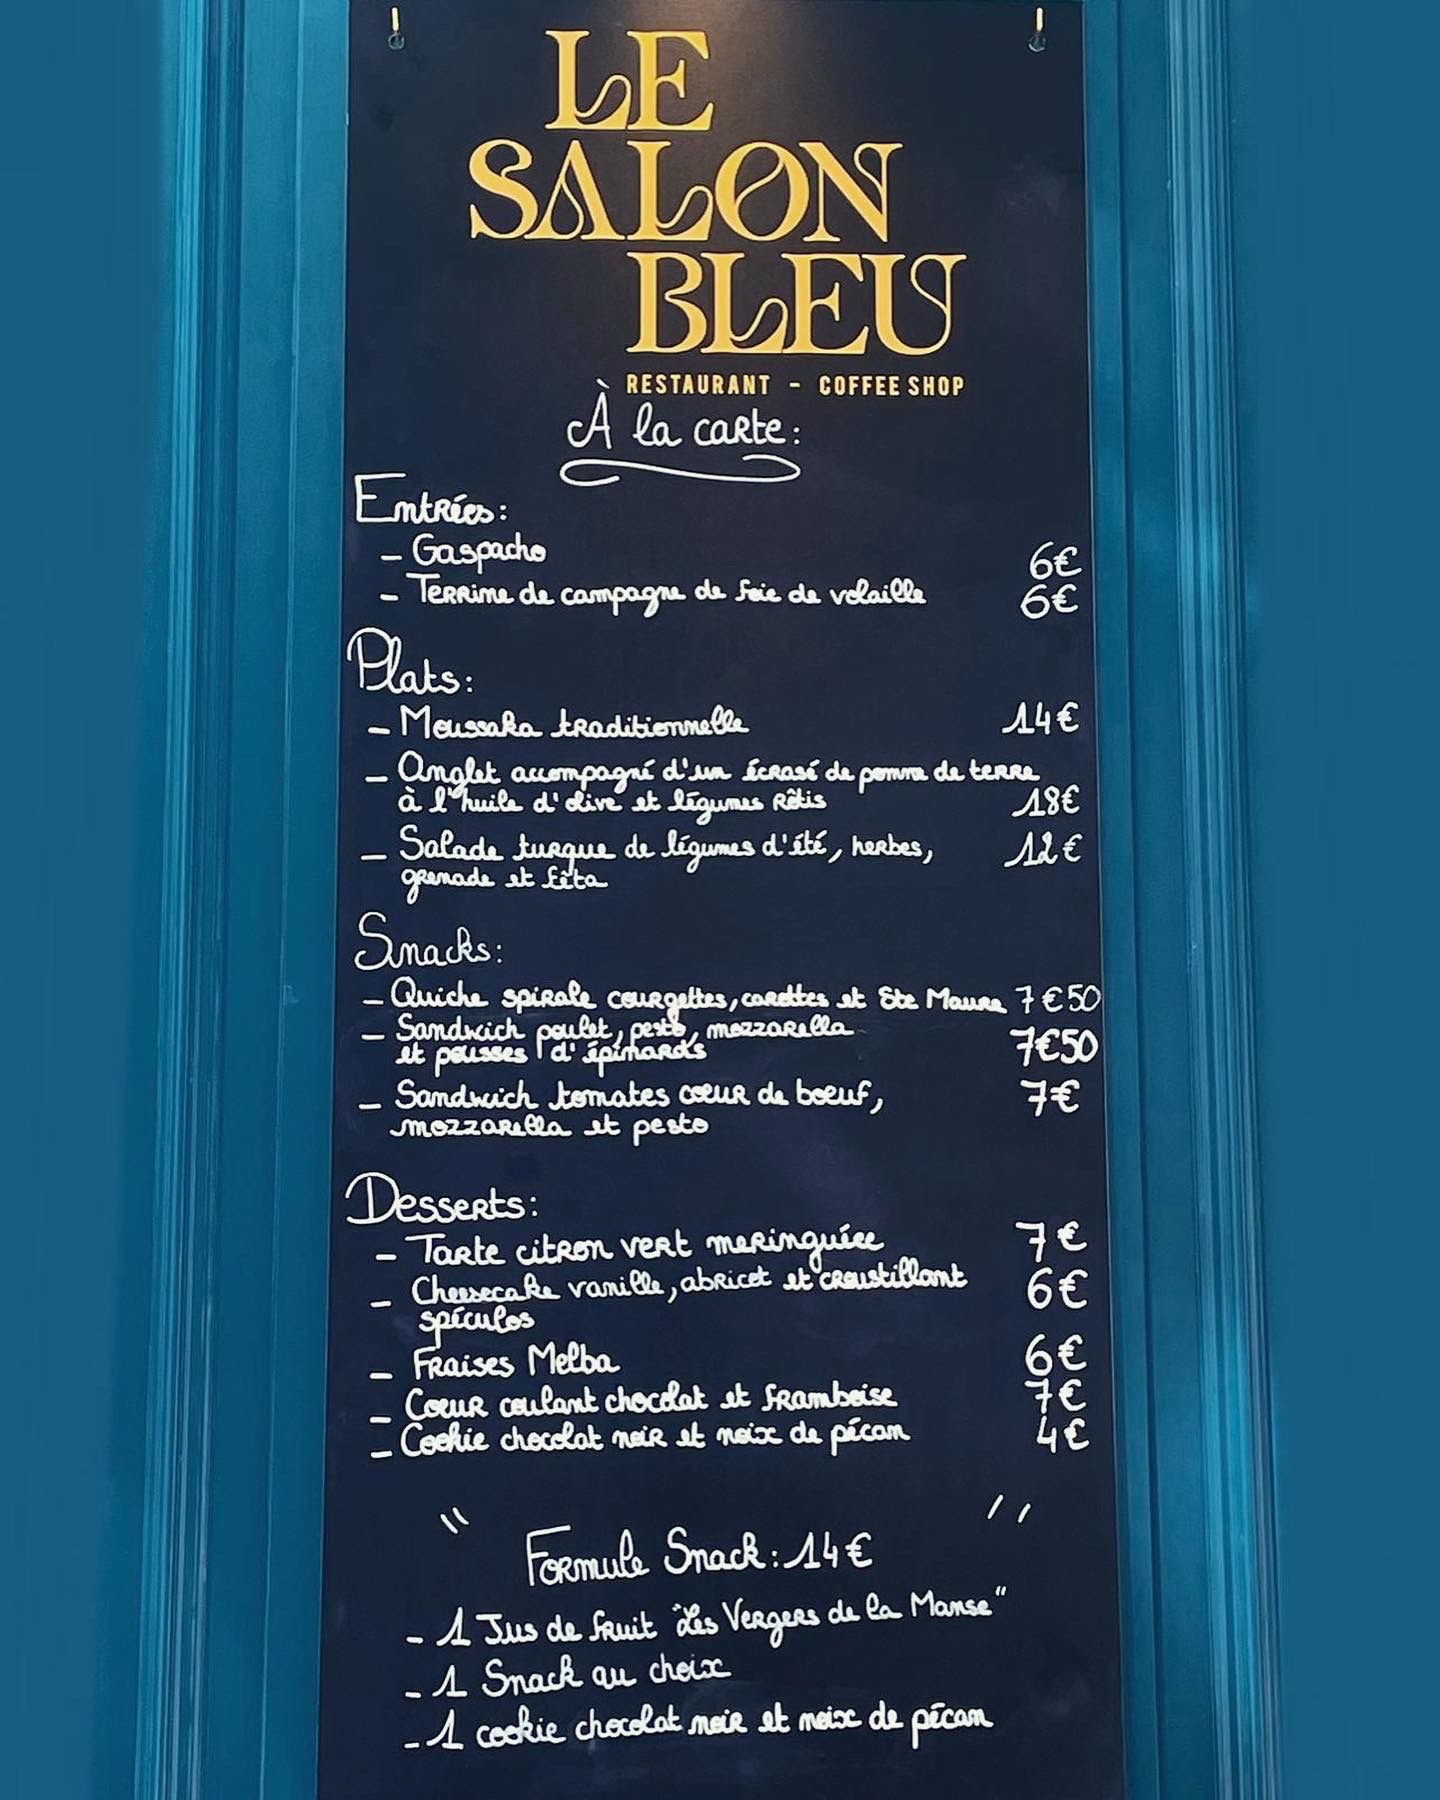 LE
SALON
BLEU
RESTAURANT - COFFEE SHOP
À la carte:
Entrées:
- Gaspacho 6€
- Terrine de campagne de foie de volaille 6€
Plats:
- Moussaka traditionnelle 14€
- Onglet accompagné d'un écrasé de pomme de terre
à l'huile d'olive et légumes rôtis 18€
- Salade turque de légumes d'été, herbes, 12€
grenade et fêta
Snacks:
- Quiche spirale courgettes, carottes et Ste Maure 7€50
- Sandwich poulet, pesto, mozzarella
et pousses d'épinards 7€50
- Sandwich tomates coeur de boeuf, 7€
mozzarella et pesto
Desserts:
- Tarte citron vert meringuée 7€
- Cheesecake vanille, abricot et croustillant 6€
spéculos
- Fraises Melba 6€
- Coeur coulant chocolat et framboise 7€
- Cookie chocolat noir et noix de pécan 4€
Formule Snack: 14€
- 1 Jus de fruit "Les Vergers de la Manse"
- 1 Snack au choix
- 1 cookie chocolat noir et noix de pécan